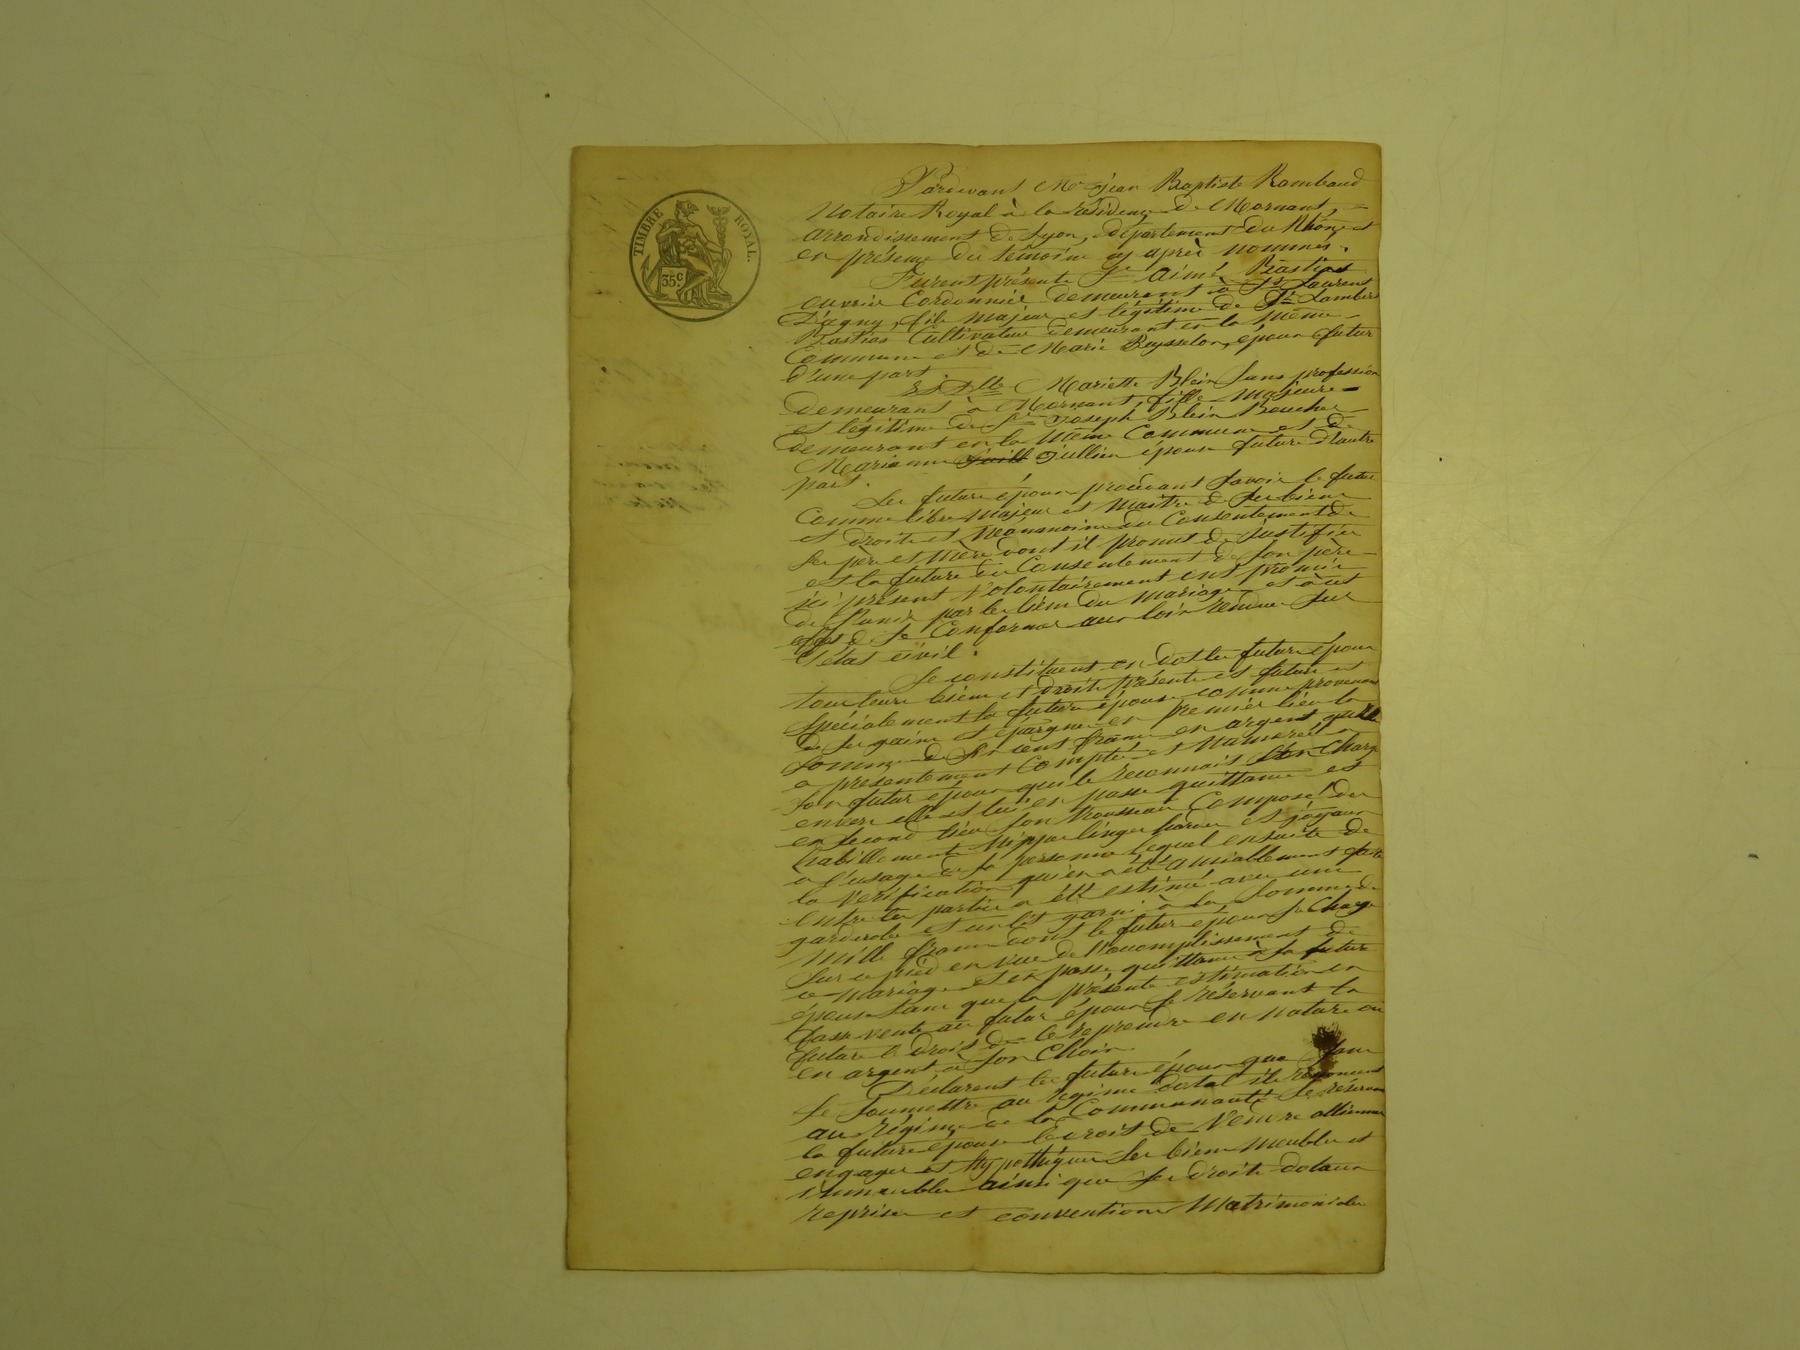 TIMBRE ROYAL.
35 c
Pardevant Me Jean Baptiste Rambaud
Notaire Royal à la résidence de Mornant,
arrondissement de Lyon, département du Rhône et
en présence des témoins cy après nommés.
Furent présents Sr Aimé Bastias
ouvrier Cordonnier demeurant à St Laurent
D'agny, fils majeur et légitime de Sr Lambert
Bastias Cultivateur demeurant en la même
Commune et de Marie Buysselon, époux futur
d'une part
Et Dlle Mariette Blein sans profession
demeurant à Mornant, fille majeure
et légitime de Sr Joseph Blein Boucher
demeurant en la même Commune et de
Marianne Jullien épouse future d'autre
part.
Les futurs époux procédant savoir le futur
Comme libre majeur et maître de ses biens
et droits et néanmoins du Consentement de
ses père et mère dont il promet de justifier
et la future du Consentement de son père
ici présent volontairement ont promis
de s'unir par les liens du mariage et à cet
effet de se Conformer aux lois rendues sur
l'état civil.
Se constituent en dot les futurs époux
tous leurs biens et droits présents et futurs et
spécialement la future épouse comme provenant
de ses gains et épargnes en premier lieu la
somme de six cent francs en argent qu'elle
a présentement Compté et numéré à
son futur époux qui le reconnait s'en Charge
envers elle et lui en passe quittance et
en second lieu son trousseau Composé des
habillements nippes linges hardes et joyaux
à l'usage de sa personne lequel ensuite de
la vérification qui en a été amiablement faite
entre les parties a été estimé avec une
garderobe et un lit garni à la somme de
mille francs dont le futur époux se Charge
sur ce pied en vue de l'accomplissement de
ce mariage et en passe quittance à sa future
épouse sans que la présente estimation en
fasse vente au futur époux se réservant la
future le droit de le reprendre en nature ou
en argent à son Choix.
Déclarent les futurs époux que sans
se soumettre au régime dotal ils renoncent
au régime de la Communauté se réservant
la future épouse le droit de vendre alliéner
engager et hypothéquer ses biens meubles et
immeubles ainsi que ses droits dotaux
reprises et conventions Matrimoniales